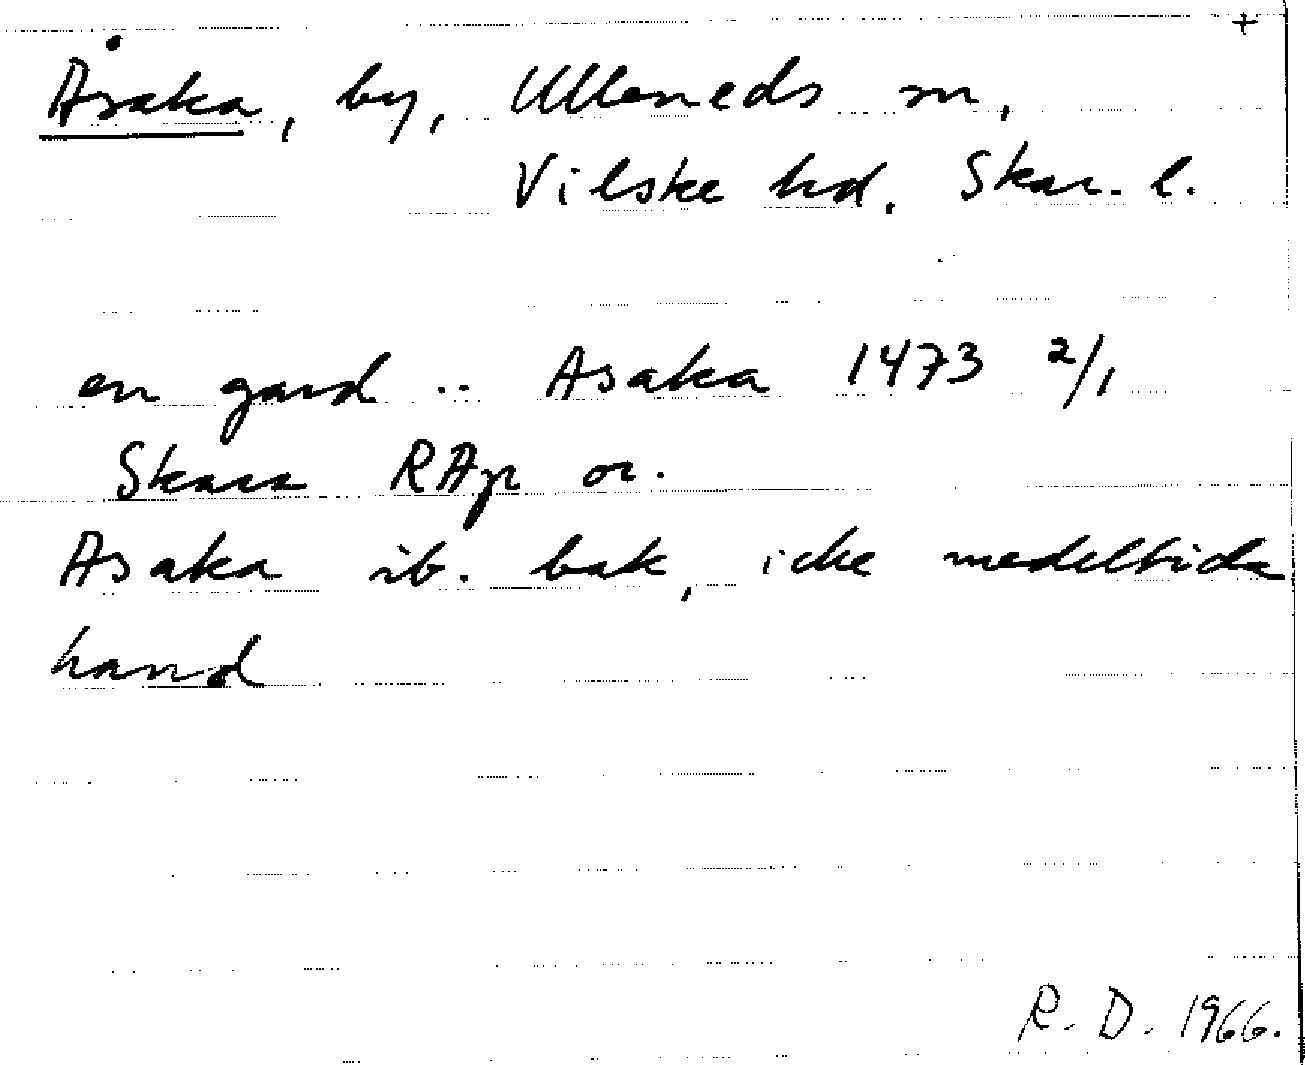 +
Åsaka, by, Ulleneds sn,
Vilske hd. Skar. l.
en gard .. Asaka 1473 2/1
Skara RAp or.
Asaka ib. bak, icke medeltida
hand
R. D. 1966.